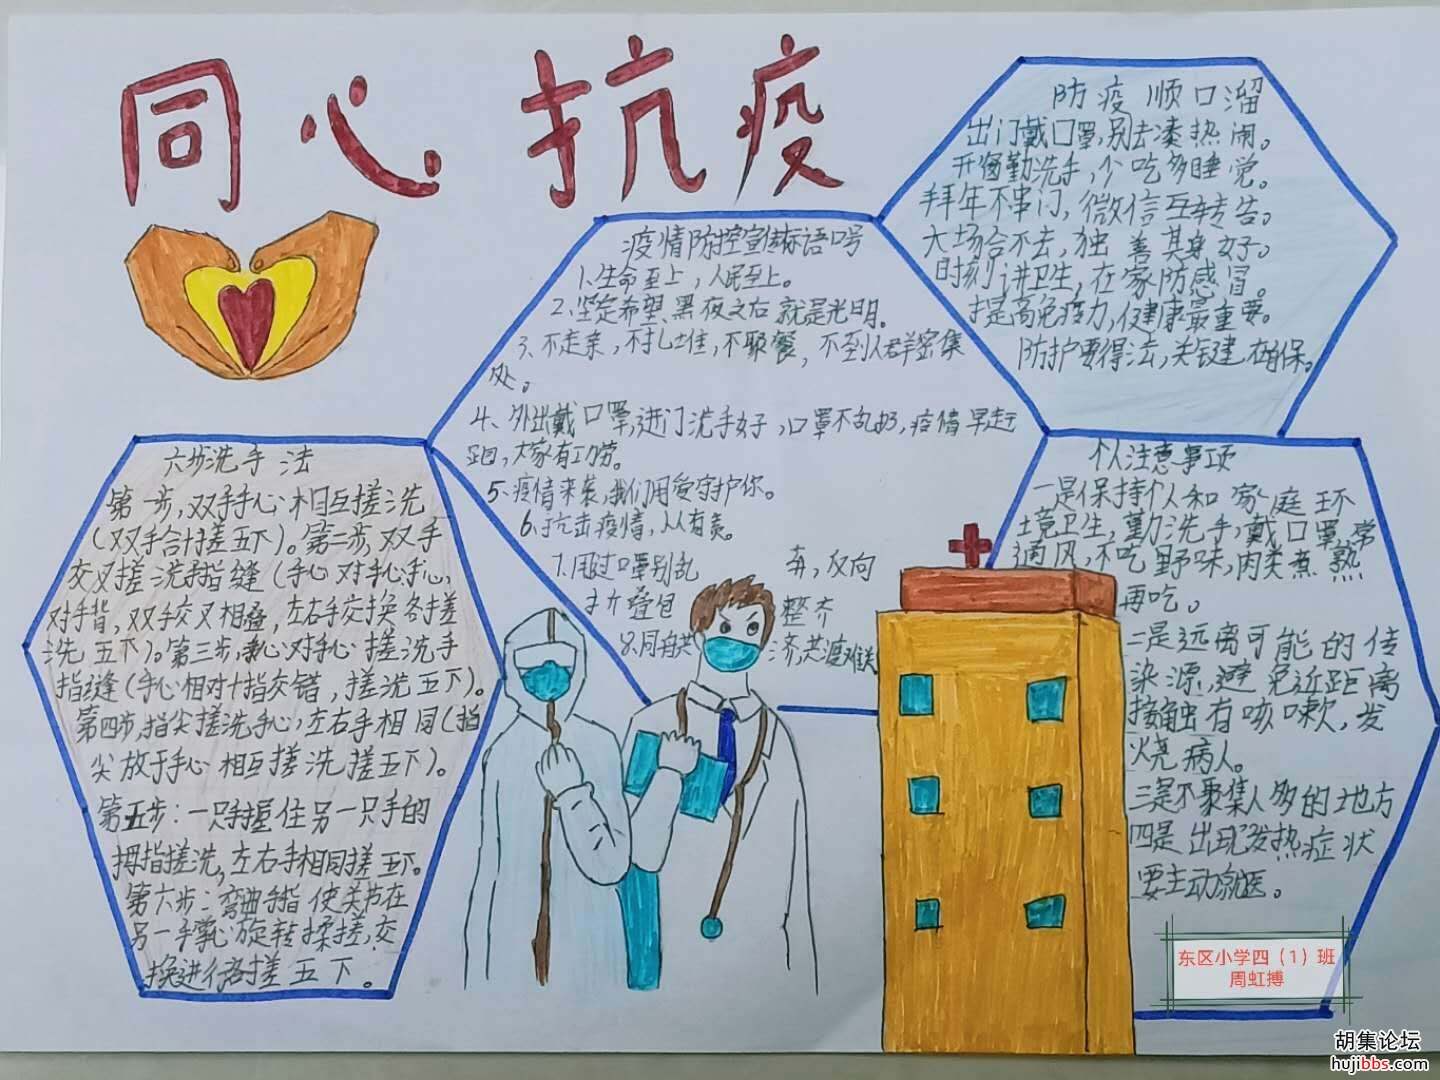 同心抗疫
防疫顺口溜
出门戴口罩,别去凑热闹。
开窗勤洗手,少吃多睡觉。
拜年不串门,微信互转告。
大场合不去,独善其身好。
时刻讲卫生,在家防感冒。
提高免疫力,健康最重要。
防护要得法,关键在自保。
疫情防控宣传标语口号
1、生命至上,人民至上。
2、坚定希望、黑夜之后就是光明。
3、不走亲,不扎堆,不聚餐,不到人群密集
处。
4、外出戴口罩,进门洗手好,口罩不乱扔,疫情早赶
跑,大家有功劳。
5、疫情来袭,我们用爱守护你。
6、抗击疫情,人人有责。
7、用过口罩别乱弃,反向
折叠包整齐
8、同舟共济,共渡难关
六步洗手法
第一步,双手手心相互搓洗
(双手合十搓五下)。第二步,双手
交叉搓洗手指缝(手心对手心,
对手背,双手交叉相叠,左右手交换各搓
洗五下)。第三步,手心对手心搓洗手
指缝(手心相对十指交错,搓洗五下)。
第四步,指尖搓洗手心,左右手相同(指
尖放于手心相互搓洗搓五下)。
第五步:一只手握住另一只手的
拇指搓洗,左右手相同搓五下。
第六步:弯曲手指使关节在
另一手掌心旋转揉搓,交
换进行各搓五下。
个人注意事项
一是保持个人和家庭环
境卫生,勤洗手,戴口罩,常
通风,不吃野味,肉类煮熟
再吃。
二是远离可能的传
染源,避免近距离
接触有咳嗽,发
烧病人。
三是不聚集人多的地方
四是出现发热症状
要主动就医。
东区小学四(1)班
周虹搏
胡集论坛
hujibbs.com